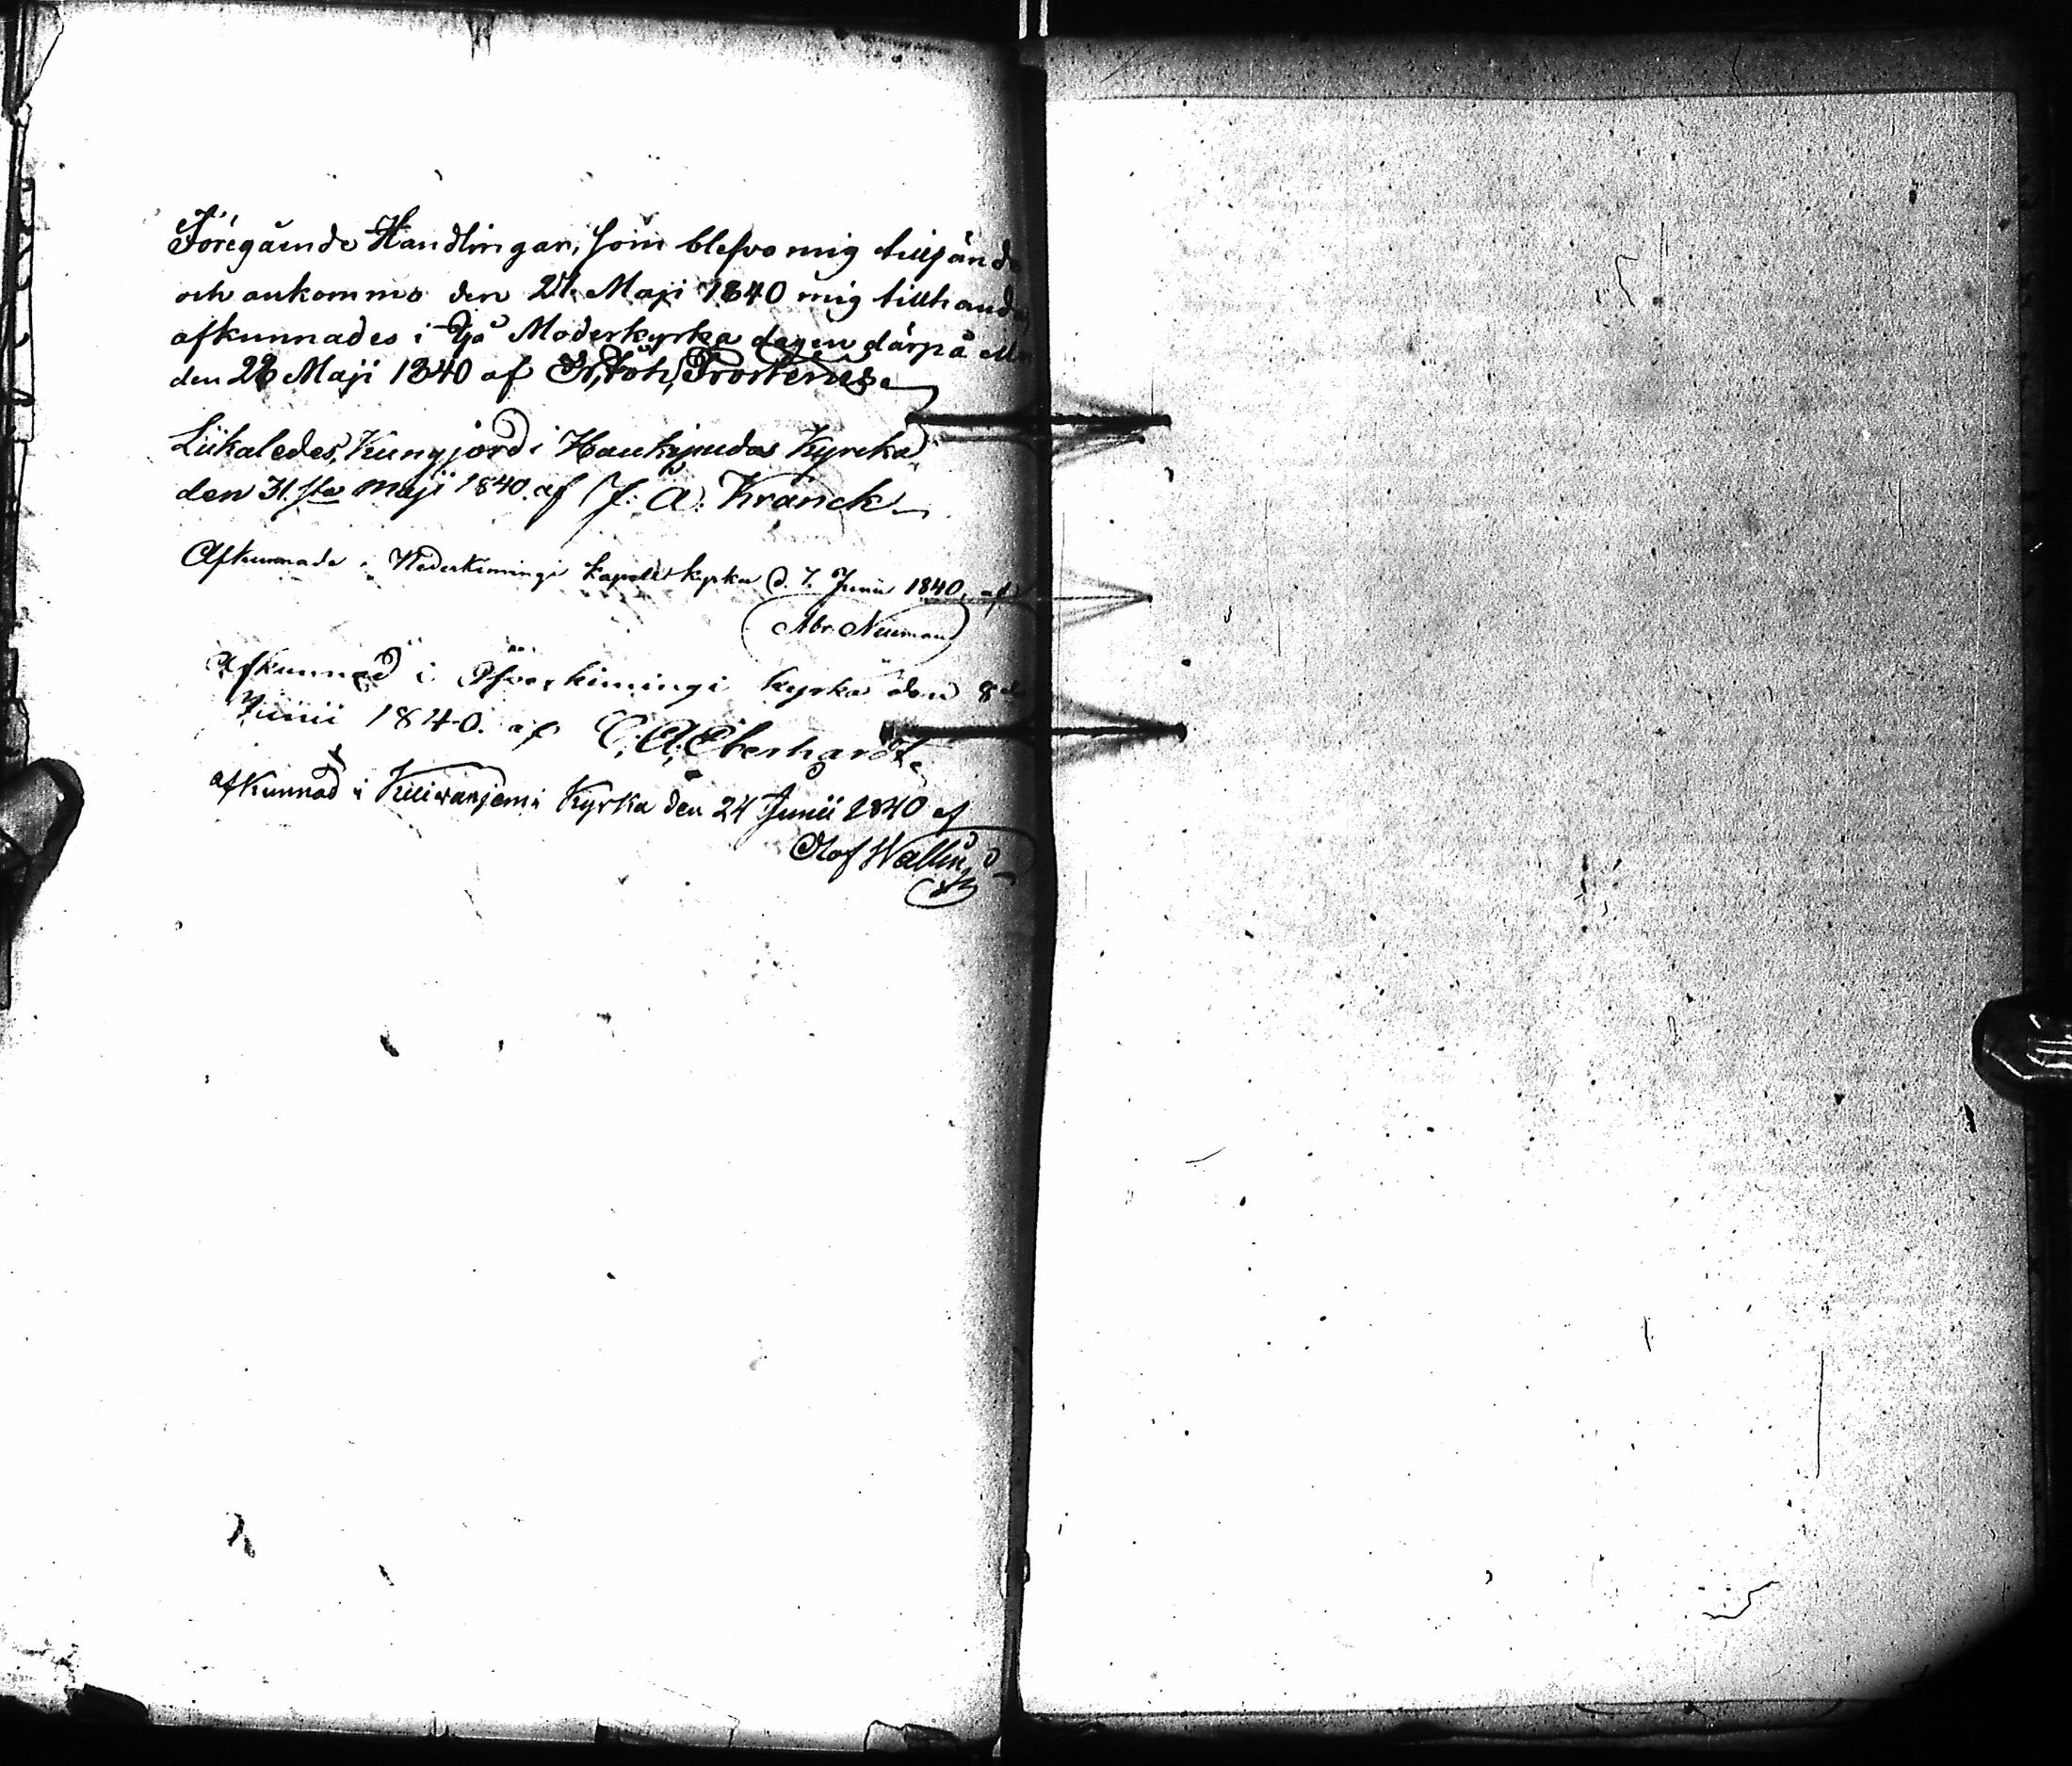 Föregående Handlingar, som blefvo mig tillsände
och ankommo den 27. Maji 1840 mig tillhanda,
afkunnades i Ijo Moderkyrka dagen därpå
den 28 Maji 1840 af Frosterus.
Likaledes, Kungjord i Haukipudas Kyrcka
den 31.sta Maji 1840. af J: A: Kranck
Afkunnade i Nederkimingi kapells kyrka d. 7. Junii 1840, af
Abr. Neuman
Afkunnad i Öfverkimingi kyrka den 8de
Junii 1840. af C. A. Eberhardt.
afkunnad i Kuivaniemi Kyrka den 24 Junii 1840 af
Olof Wallin